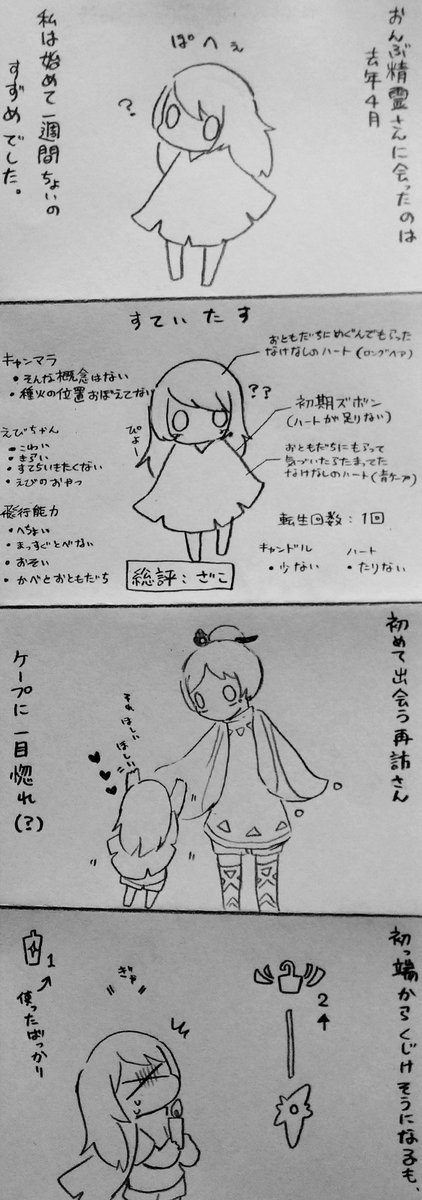 おんぶ精霊さんに会ったのは
去年4月
ぱへぇ
?
私は始めて一週間ちょいの
すずめでした。
すていたす
キャンマラ
・そんな概念はない
・種火の位置おぼえてない
えびちゃん
・こわい
・きらい
・すてらいきたくない
・えびのおやつ
飛行能力
・へちょい
・まっすぐとべない
・おそい
・かべとおともだち
ぴょー
??
おともだちにめぐんでもらった
なけなしのハート(ロングヘア)
初期ズボン
(ハートが足りない)
おともだちにもらって
気づいたらたまってた
なけなしのハート(青ケープ)
転生回数:1回
キャンドル
・少ない
ハート
・たりない
総評:ざこ
初めて出会う再訪さん
それほしい
ほしい
ケープに一目惚れ(?)
初っ端からくじけそうになるも、
2
1
使ったばっかり
ぎゃ